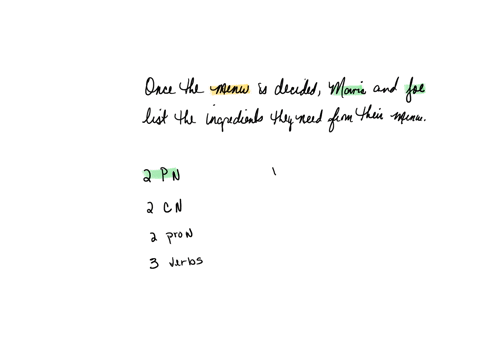 Once the menu is decided, Maria and Joe
list the ingredients they need from their menu.
2 PN
2 CN
2 pron
3 verbs